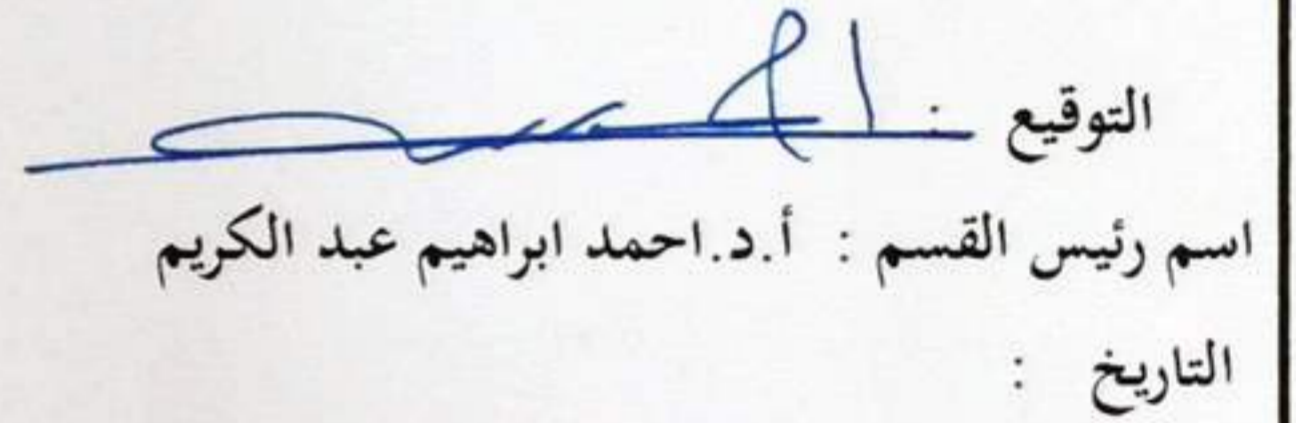 التوقيع :
اسم رئيس القسم : أ.د. احمد ابراهيم عبد الكريم
التاريخ :